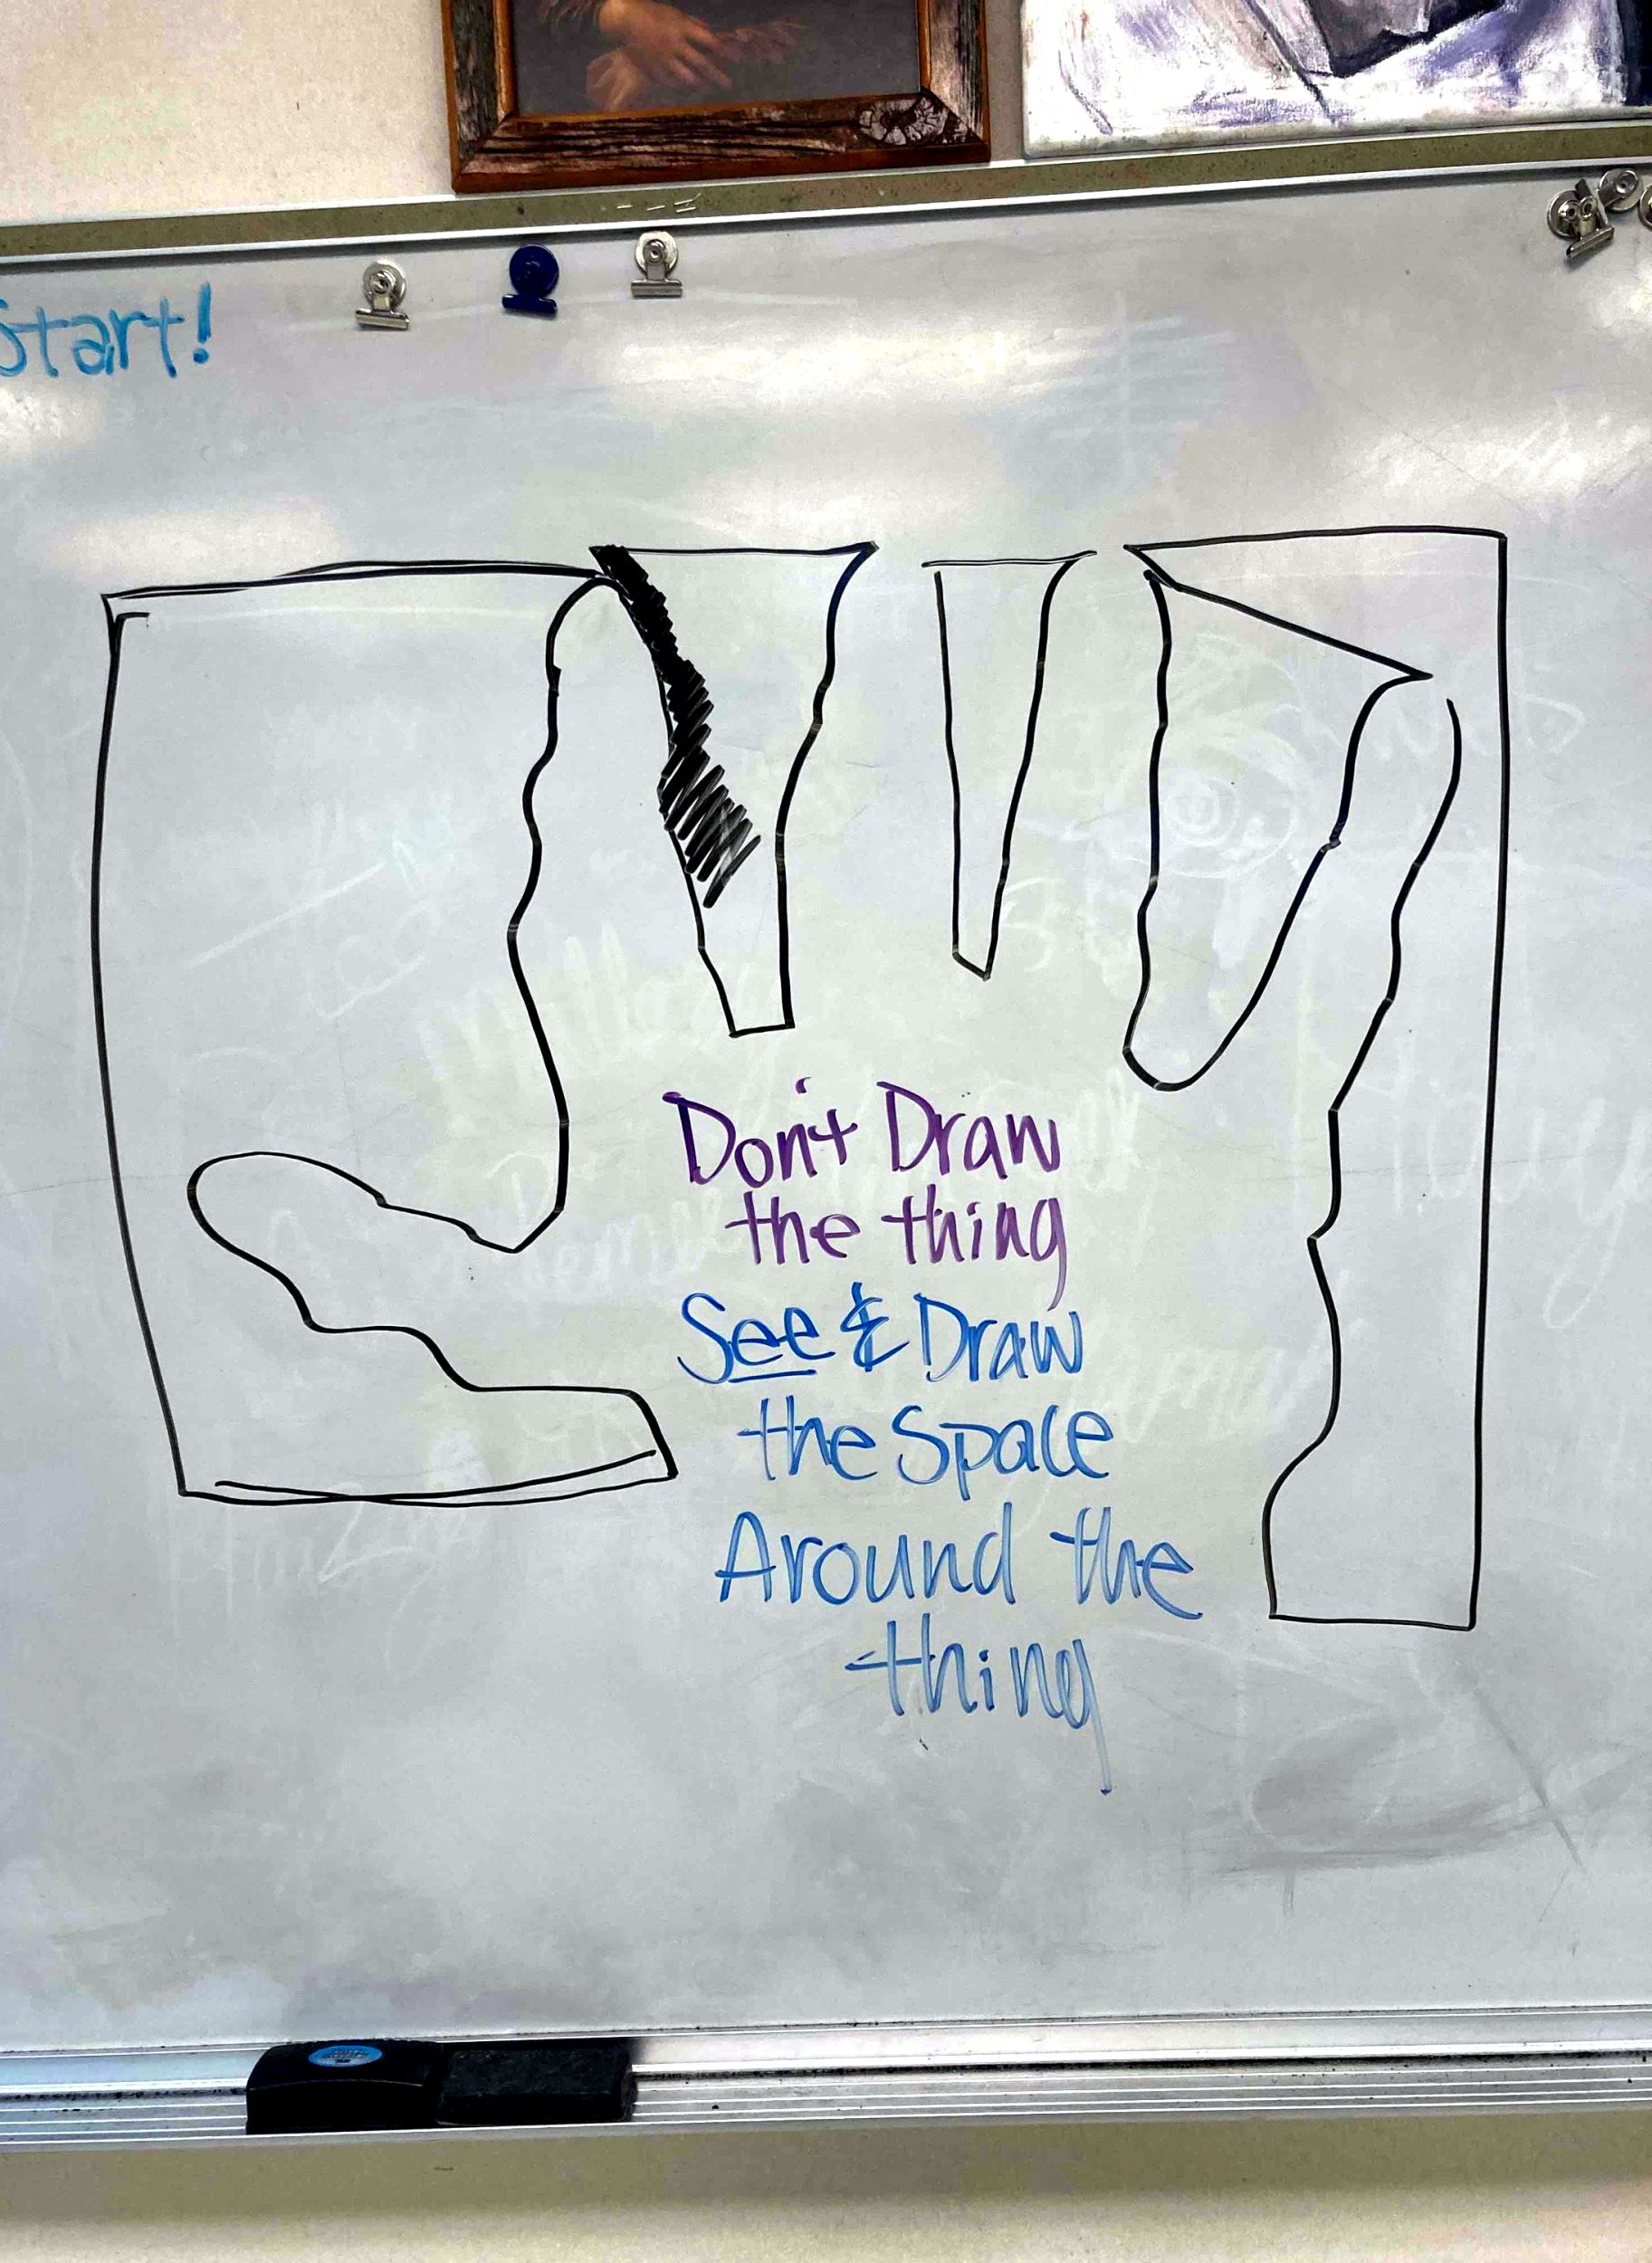 Start!
Don't Draw
the thing
See & Draw
the Space
Around the
thing